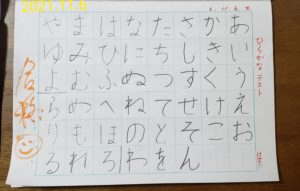 2021.11.6
ひらがな テスト
あいうえお
かきくけこ
さしすせそ
たちつてと
なにぬねの
はひふへほ
まみむめも
やゆよらり
るれろわをん
合格